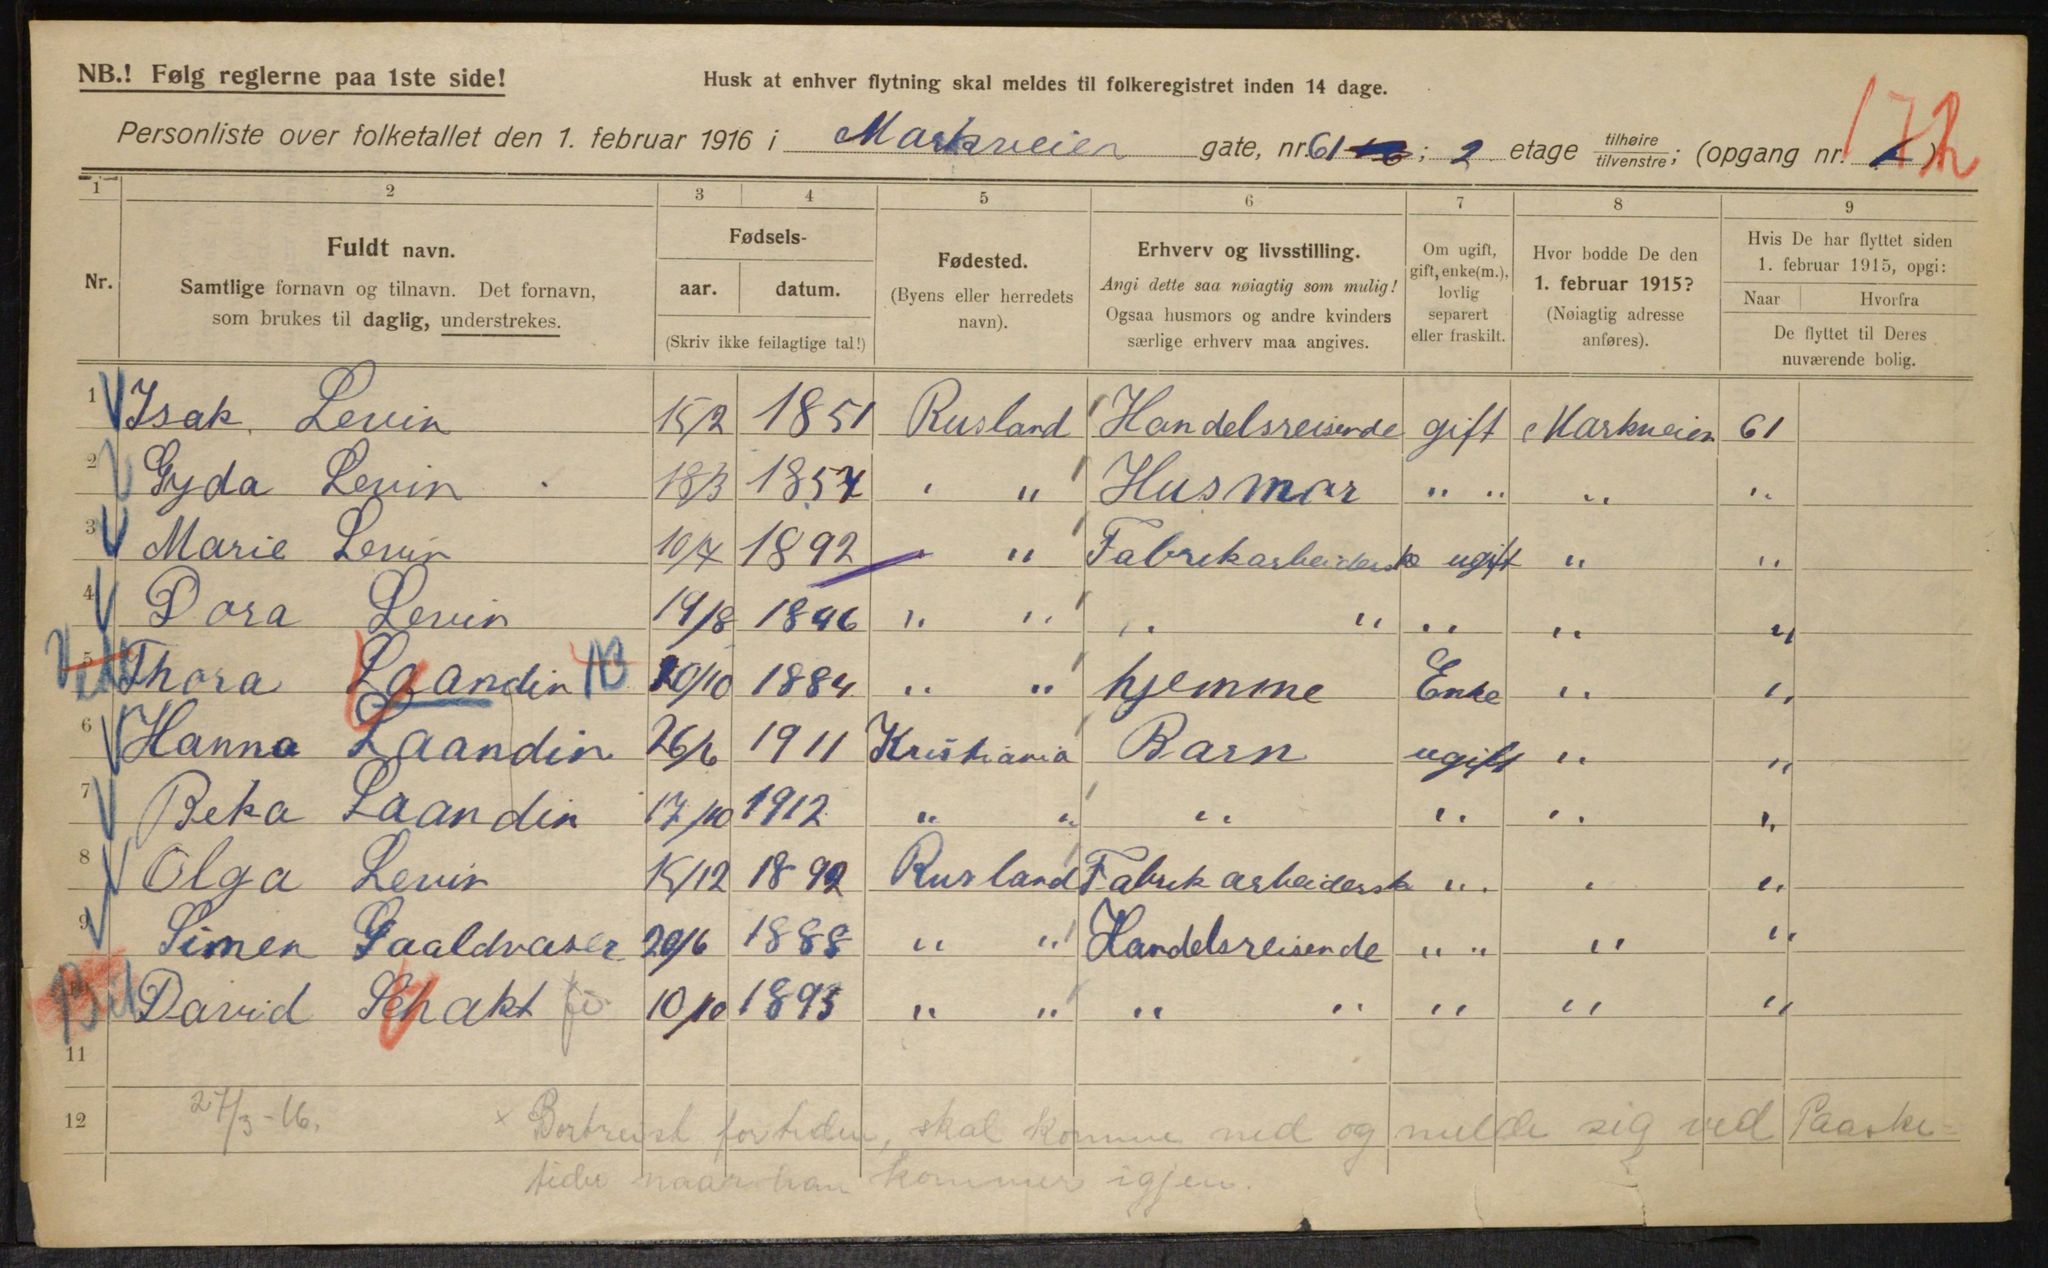 NB.! Følg reglerne paa 1ste side!
Husk at enhver flytning skal meldes til folkeregistret inden 14 dage.
172
Personliste over folketallet den 1. februar 1916 i Markveien gate, nr. 61; 2 etage tilhøire tilvenstre; (opgang nr. )
1 2 3 4 5 6 7 8 9
Nr.
Fuldt navn.
Samtlige fornavn og tilnavn. Det fornavn,
som brukes til daglig, understrekes.
Fødsels-
aar. datum.
(Skriv ikke feilagtige tal!)
Fødested.
(Byens eller herredets
navn).
Erhverv og livsstilling.
Angi dette saa nøiagtig som mulig!
Ogsaa husmors og andre kvinders
særlige erhverv maa angives.
Om ugift,
gift, enke(m.),
lovlig
separert
eller fraskilt.
Hvor bodde De den
1. februar 1915?
(Nøiagtig adresse
anføres).
Hvis De har flyttet siden
1. februar 1915, opgi:
Naar Hvorfra
De flyttet til Deres
nuværende bolig.
1 Isak Levin 15/2 1851 Rusland Handelsreisende gift Markveien 61
2 Gyda Levin 18/3 1857 " " Husmor " " " "
3 Marie Levin 10/7 1892 " " Fabrikarbeiderske ugift " "
4 Dora Levin 19/8 1896 " " " " " " "
5 Thora Laandin 20/10 1884 " " hjemme Enke " "
6 Hanna Laandin 26/6 1911 Kristiania Barn ugift " "
7 Beka Laandin 17/10 1912 " " " " " "
8 Olga Levin 15/12 1892 Rusland Fabrikarbeidersk " " "
9 Simen Gaaldvaser 20/6 1888 " " Handelsreisende " " " "
David Schakt 10/10 1895 " " " " " " "
11
12 27/3-16. × Bortreist for tiden, skal komme ned og melde sig ved Paaske-
tider naar han kommer igjen.